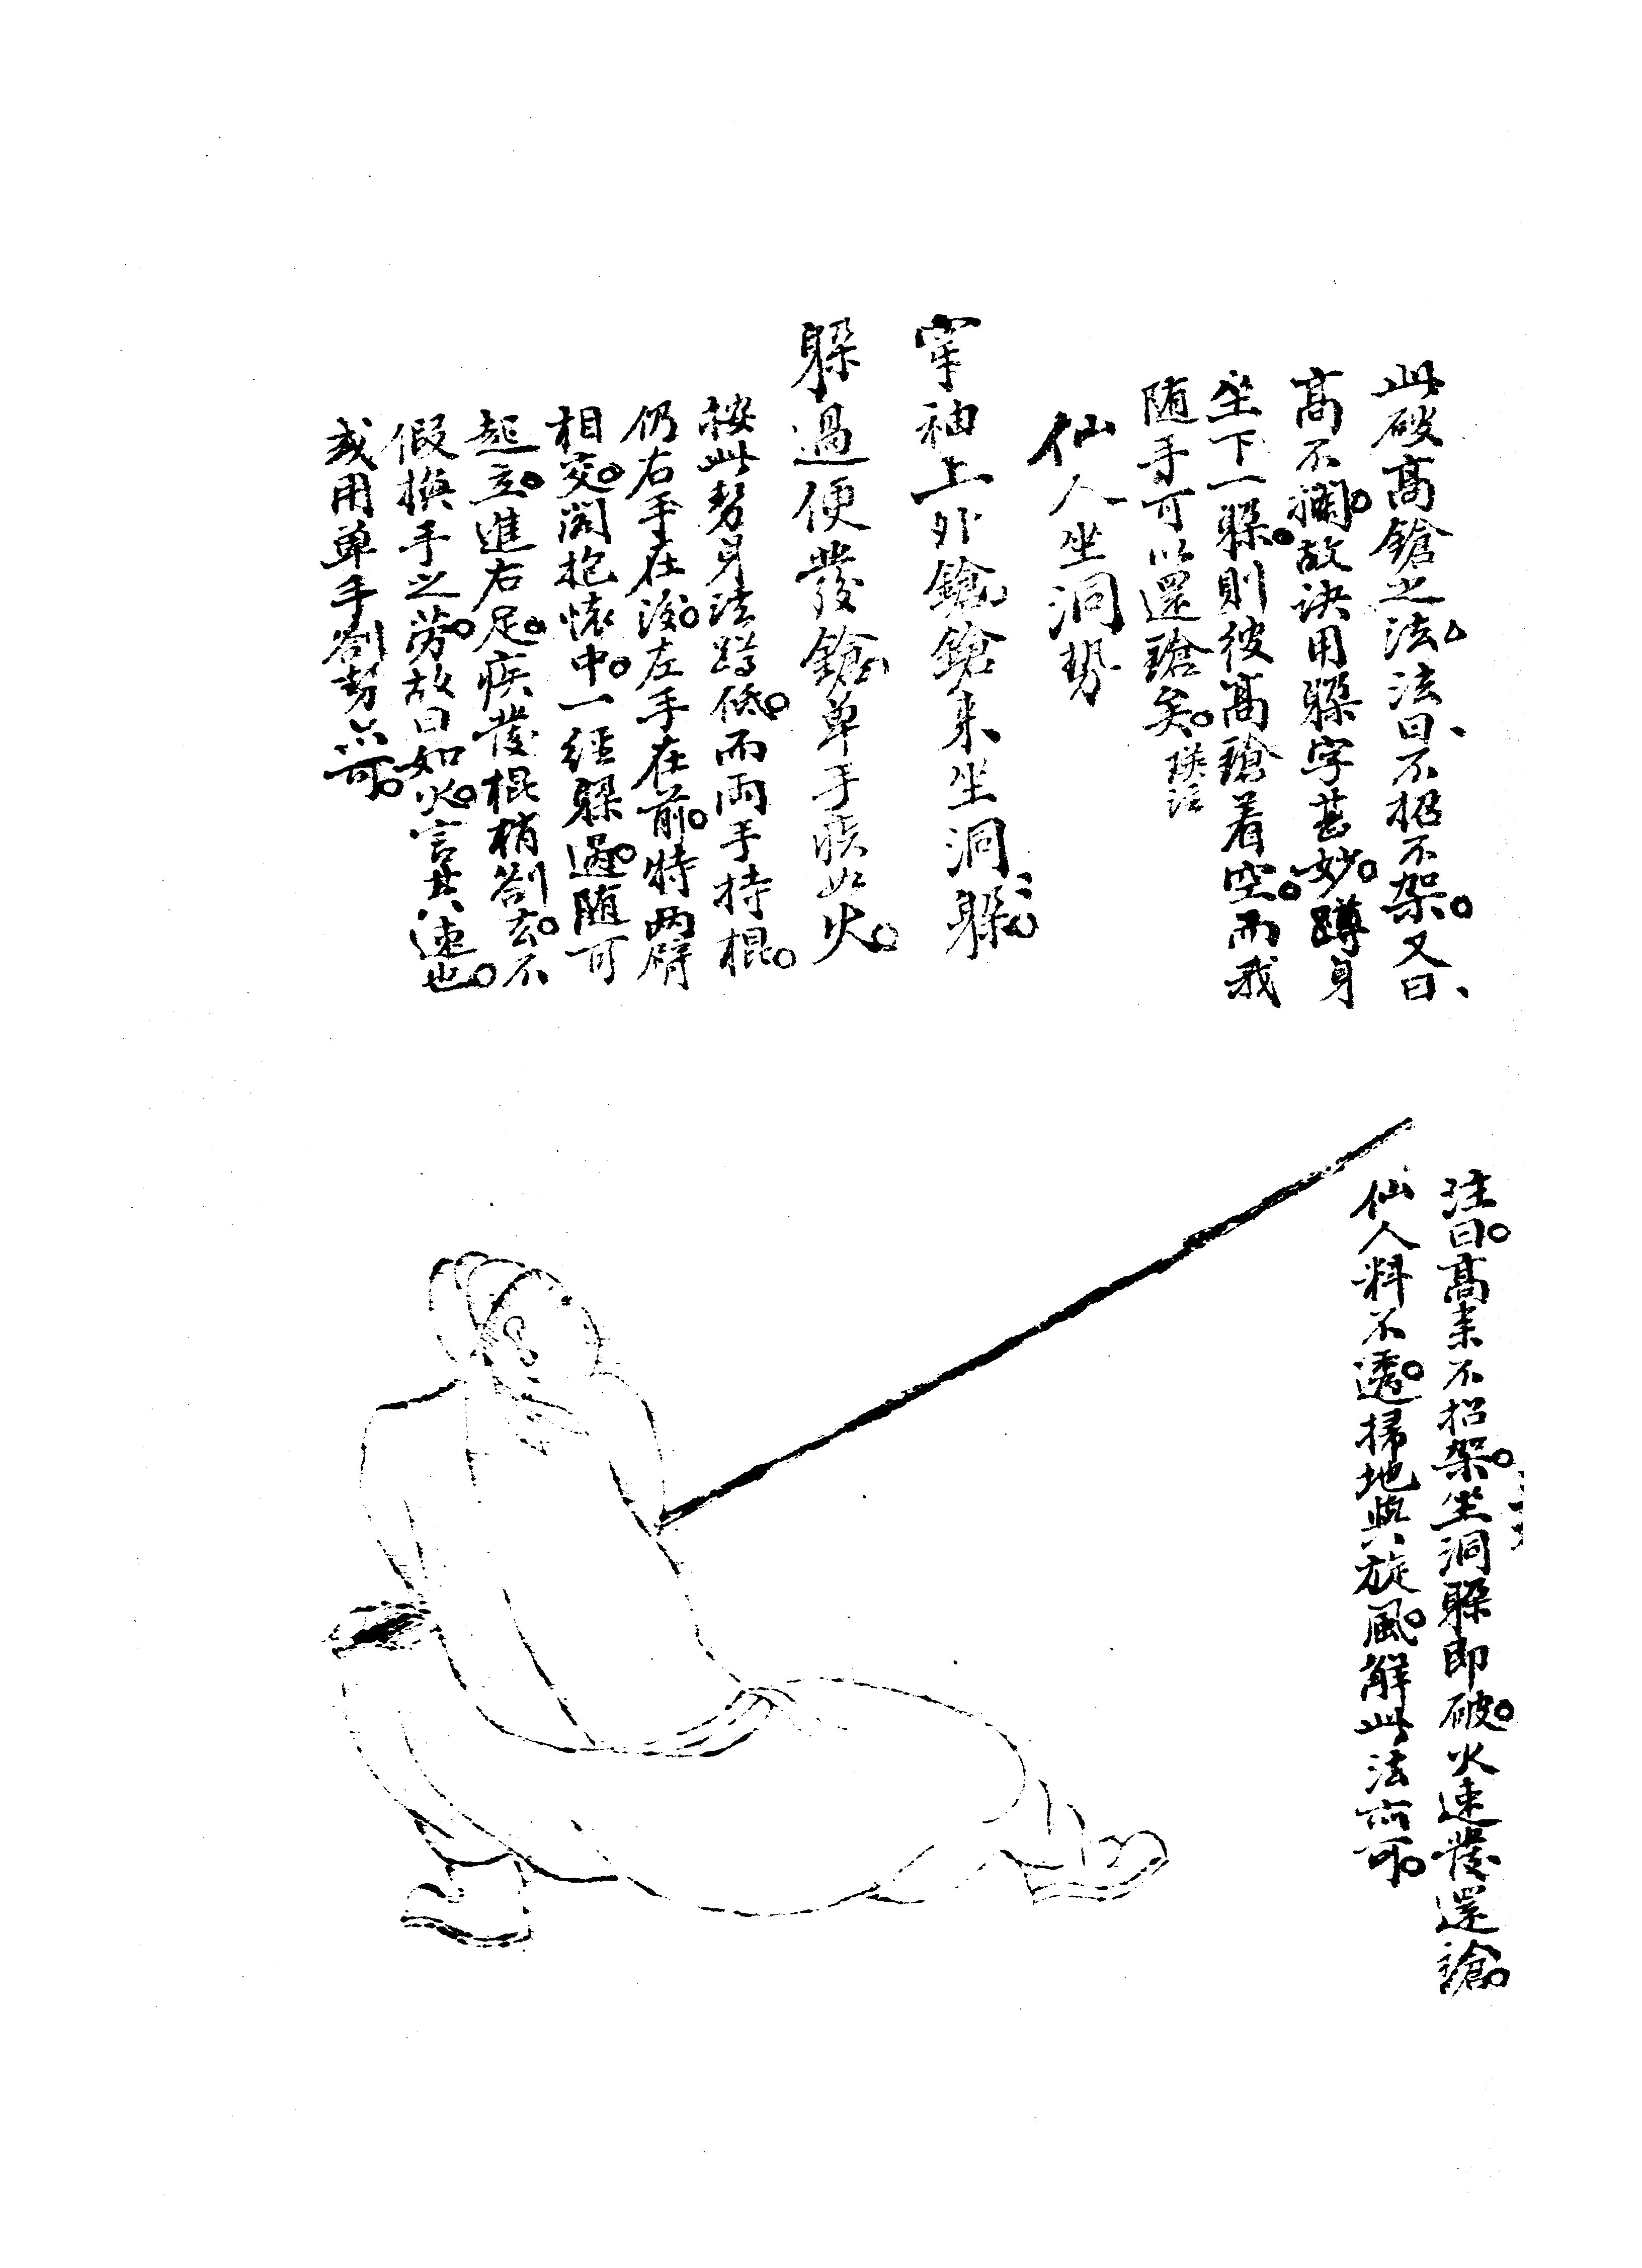 此破髙鎗之法法曰不招不架又曰
髙不攔故訣用躱字甚妙蹲身
坐下一躱則彼髙鎗着空而我
随手可以還鎗矣
仙人坐洞势
袖上外鎗鎗来坐洞躱
躱過便發鎗单手疾如火
按此势身法蹲低而两手持棍
仍右手在後左手在前将两臂
相交闊抱懷中一经躱過随可
起立進右足疾發棍梢劄去不
假换手之劳故曰如火言其速也
或用单手劄势亦可
注曰髙来不招架坐洞躱即破火速發還鎗
仙人料不透掃地與旋風解此法亦可